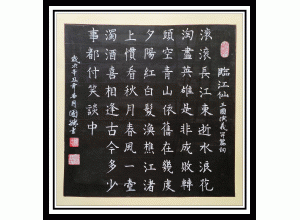 臨江仙 三國演義
滾滾長江東逝水浪花
淘盡英雄是非成敗轉
頭空青山依舊在幾度
夕陽紅白髮漁樵江渚
上慣看秋月春風一壺
濁酒喜相逢古今多少
事都付笑談中
歲次辛丑年春月